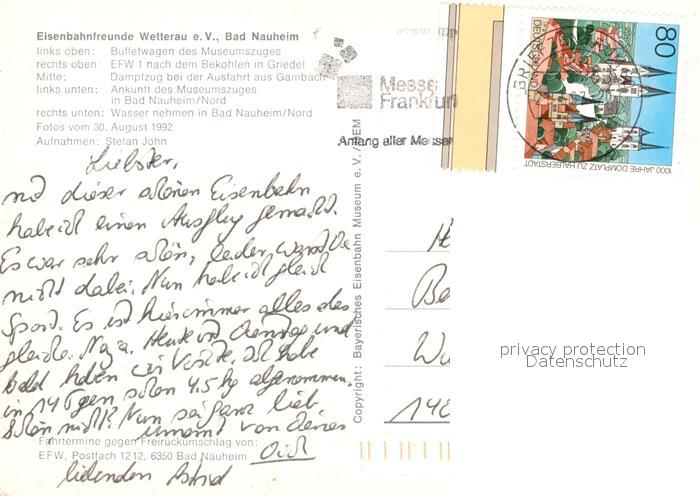 Eisenbahnfreunde Wetterau e.V., Bad Nauheim
links oben: Buffetwagen des Museumszuges
rechts oben: EFW 1 nach dem Bekohlen in Griedel
Mitte: Dampfzug bei der Ausfahrt aus Gambach
links unten: Ankunft des Museumszuges
in Bad Nauheim/Nord
rechts unten: Wasser nehmen in Bad Nauheim/Nord
Fotos vom 30. August 1992
Aufnahmen: Stefan John
Liebster,
mit dieser schönen Eisenbahn
habe ich einen Ausflug gemacht.
Es war sehr schön, leider warst Du
nicht dabei. Nun habe ich gleich
Sport. Es ist hier immer alles das
gleiche. Na ja. Heute ist Dienstag und
bald haben wir Visite. Ich habe
in 14 Tagen schon 4,5 kg abgenommen.
Schön nicht? Nun sei ganz lieb
umarmt von Deiner
Dich
liebenden Astrid
Fahrtermine gegen Freirückumschlag von:
EFW, Postfach 1212, 6350 Bad Nauheim
Copyright: Bayerisches Eisenbahn Museum e. V./BEM
Messe
Frankfurt
Anfang aller Messen
80
DEUTSCHLAND
1000 JAHRE DOMPLATZ ZU HALBERSTADT
BRI
H
Be
Wu
148
privacy protection
Datenschutz